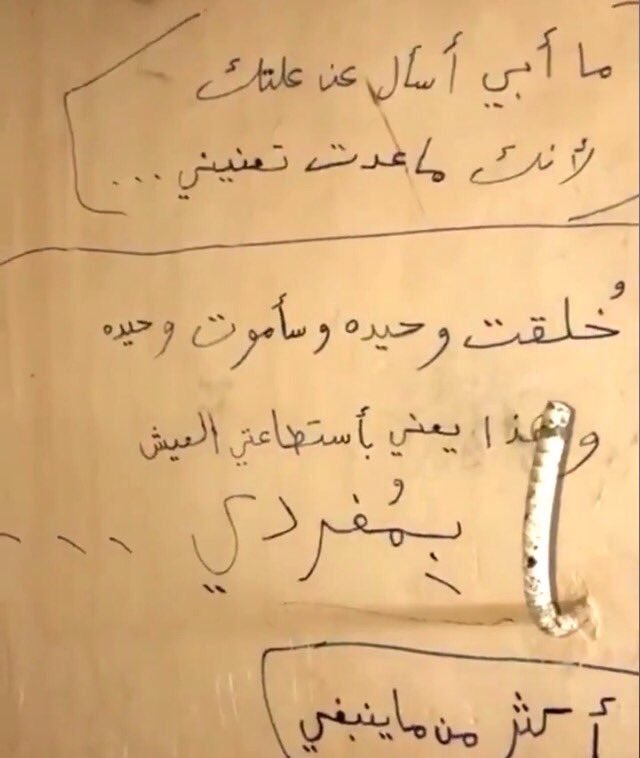 ما أبي أسأل عن علتك
لأنك ماعدت تعنيني ...
خُلقت وحيده وسأموت وحيده
وهذا يعني بأستطاعتي العيش
بِمُفردي ...
أكثر من ماينبغي